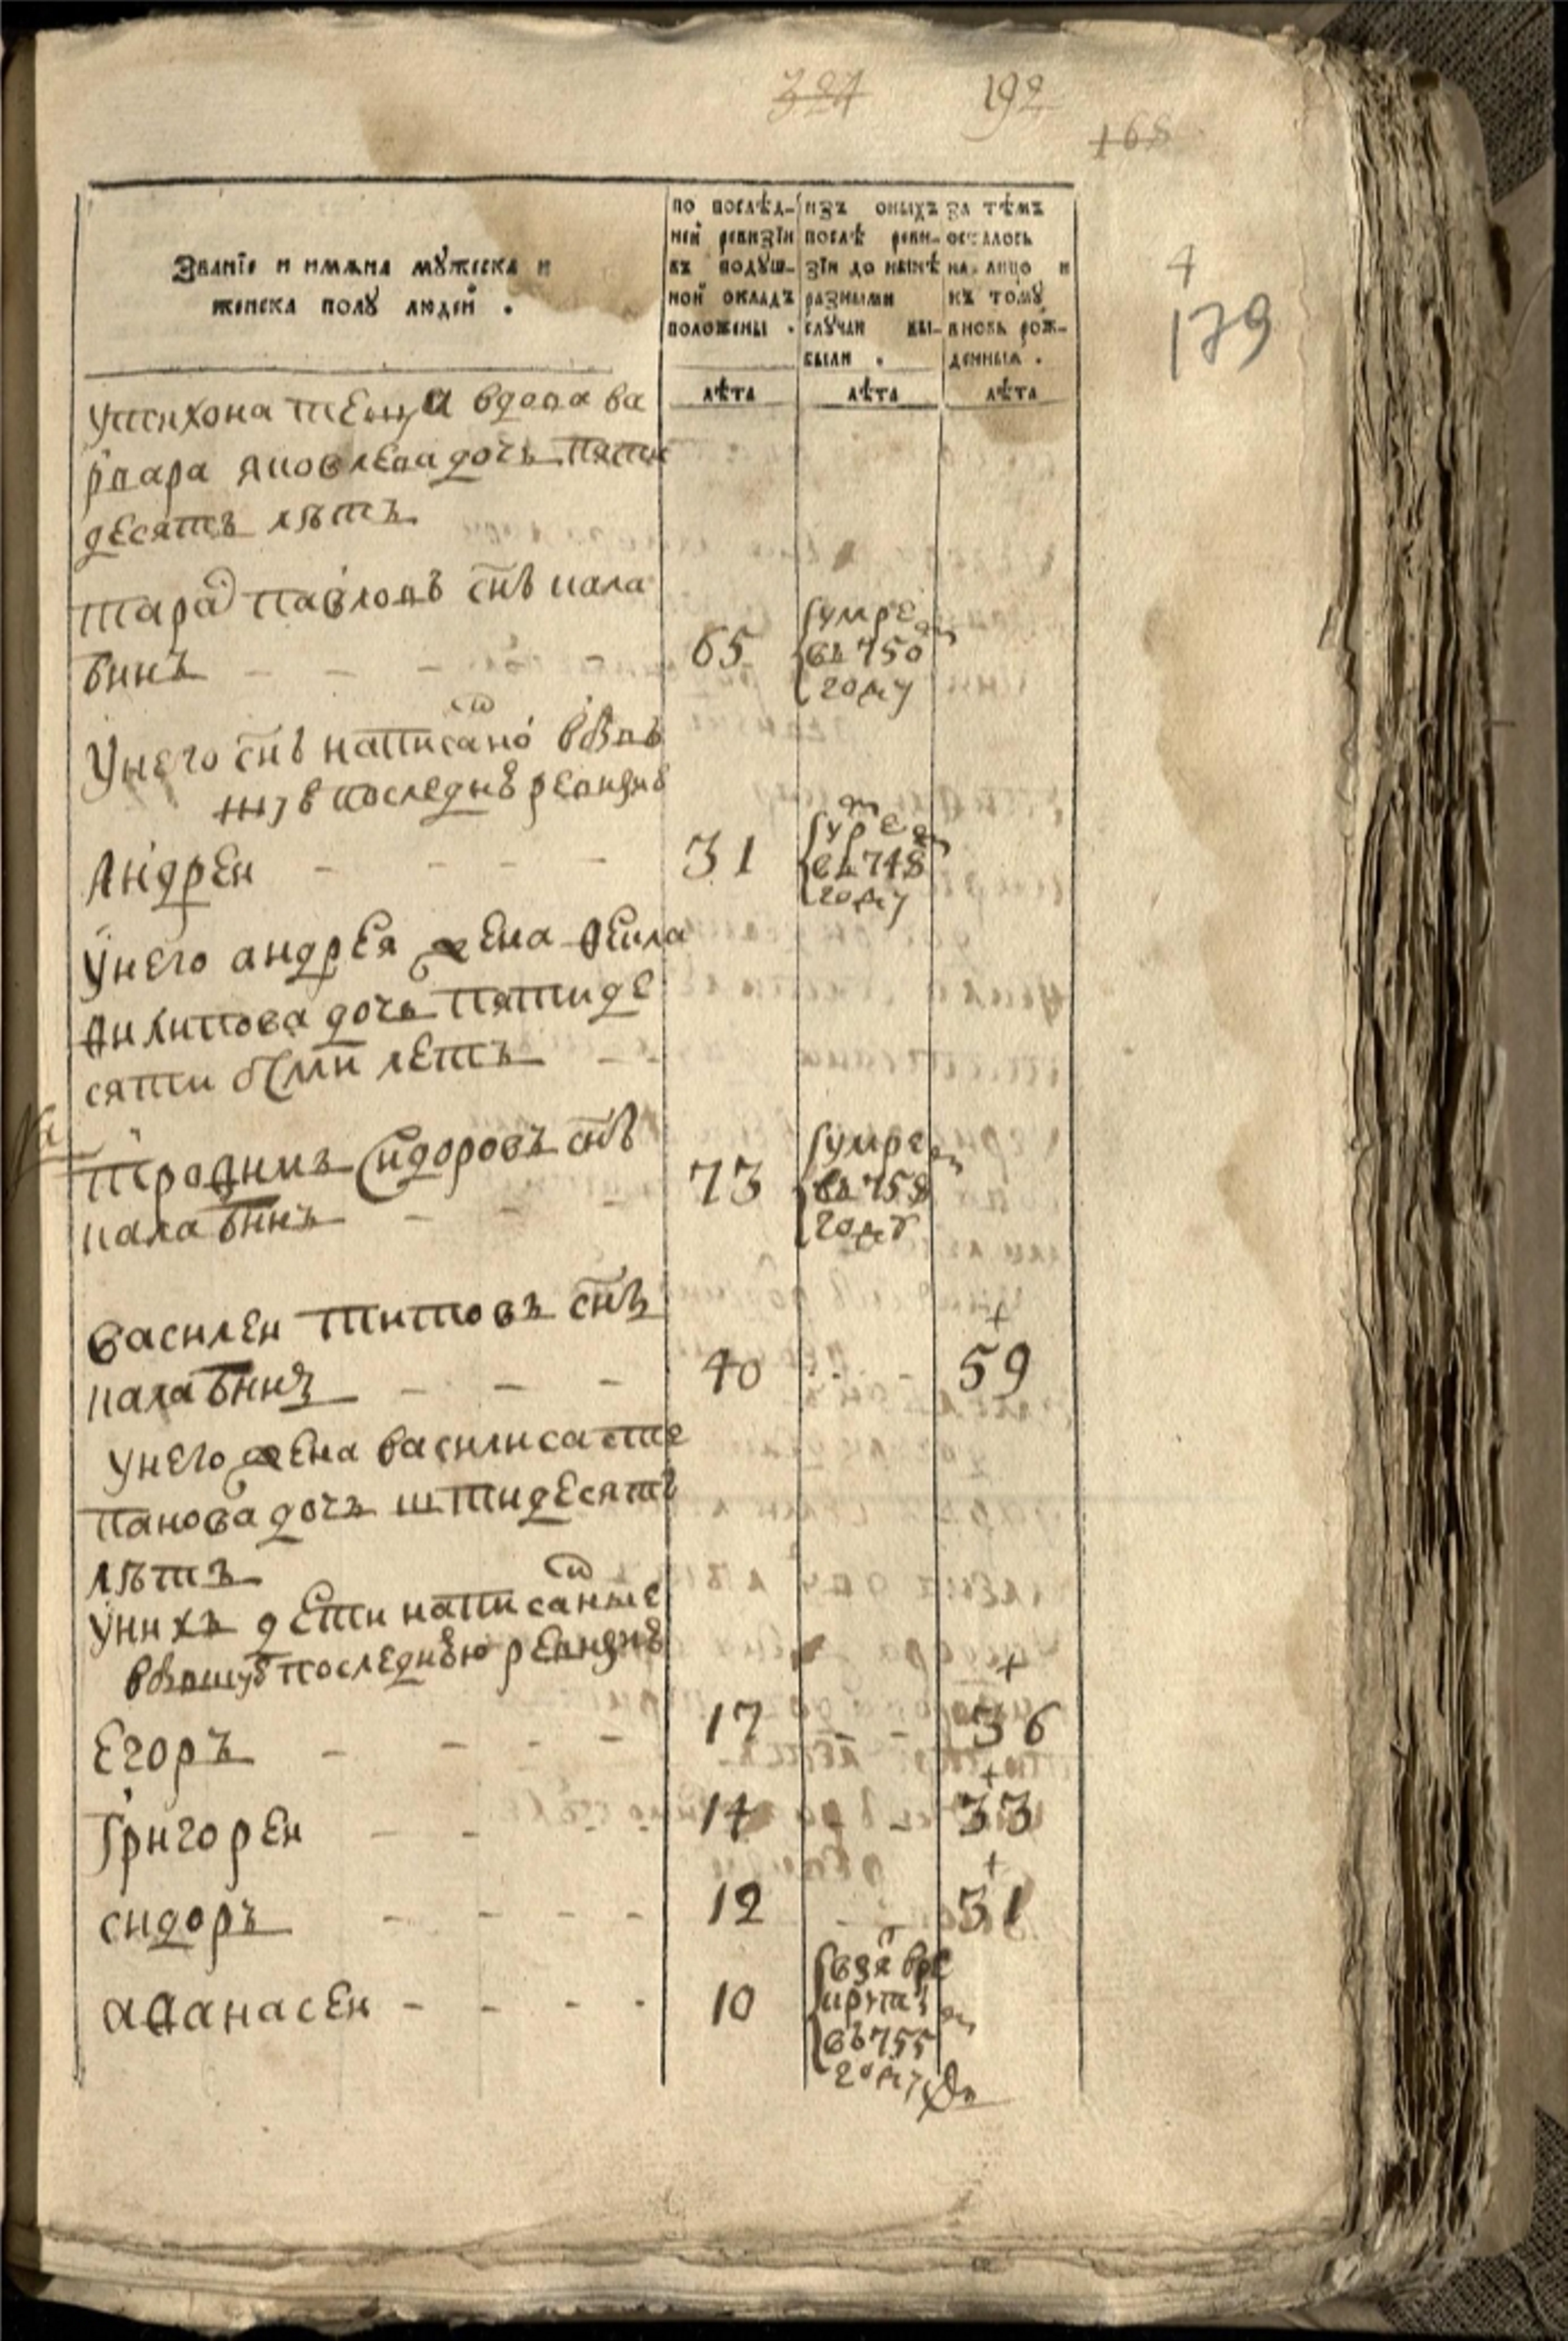 324 192
168
4
179
Званїе и имяна мꙋжеска и
женска полꙋ людей .
по послѣд-
ней ревизїи
въ подꙋш-
ной окладъ
положены .
изъ оныхъ
послѣ реви-
зїи до нынѣ
разными
слꙋчаи вы-
были .
за тѣмъ
осталось
на лицо и
къ томꙋ
вновь рож-
денныя .
лѣта лѣта лѣта
утихона теща вдова ва
рвара яковлева дочь пяти
десятъ лѣтъ
тара павловъ снъ кала
бинъ 65 умре въ 750 году
Унего снъ написано
последнѣ ревизиѣ
Андреи 31 умре въ 748 году
Унего андрея жена Ѳекла
Филипова дочь пятиде
сяти осми летъ
Трофимъ Сидоровъ снъ
калабинъ 73 умре въ 758 году
Василеи Титовъ снъ
калабинъ 40 59
Унего жена василиса сте
панова дочь штидесятъ
лѣтъ
Унихъ дети написаные
последнѣю ревизиѣ
Егоръ 17 36
Григореи 14 33
сидоръ 12 31
аѳанасеи 10 взя вре
круты
въ 755
году